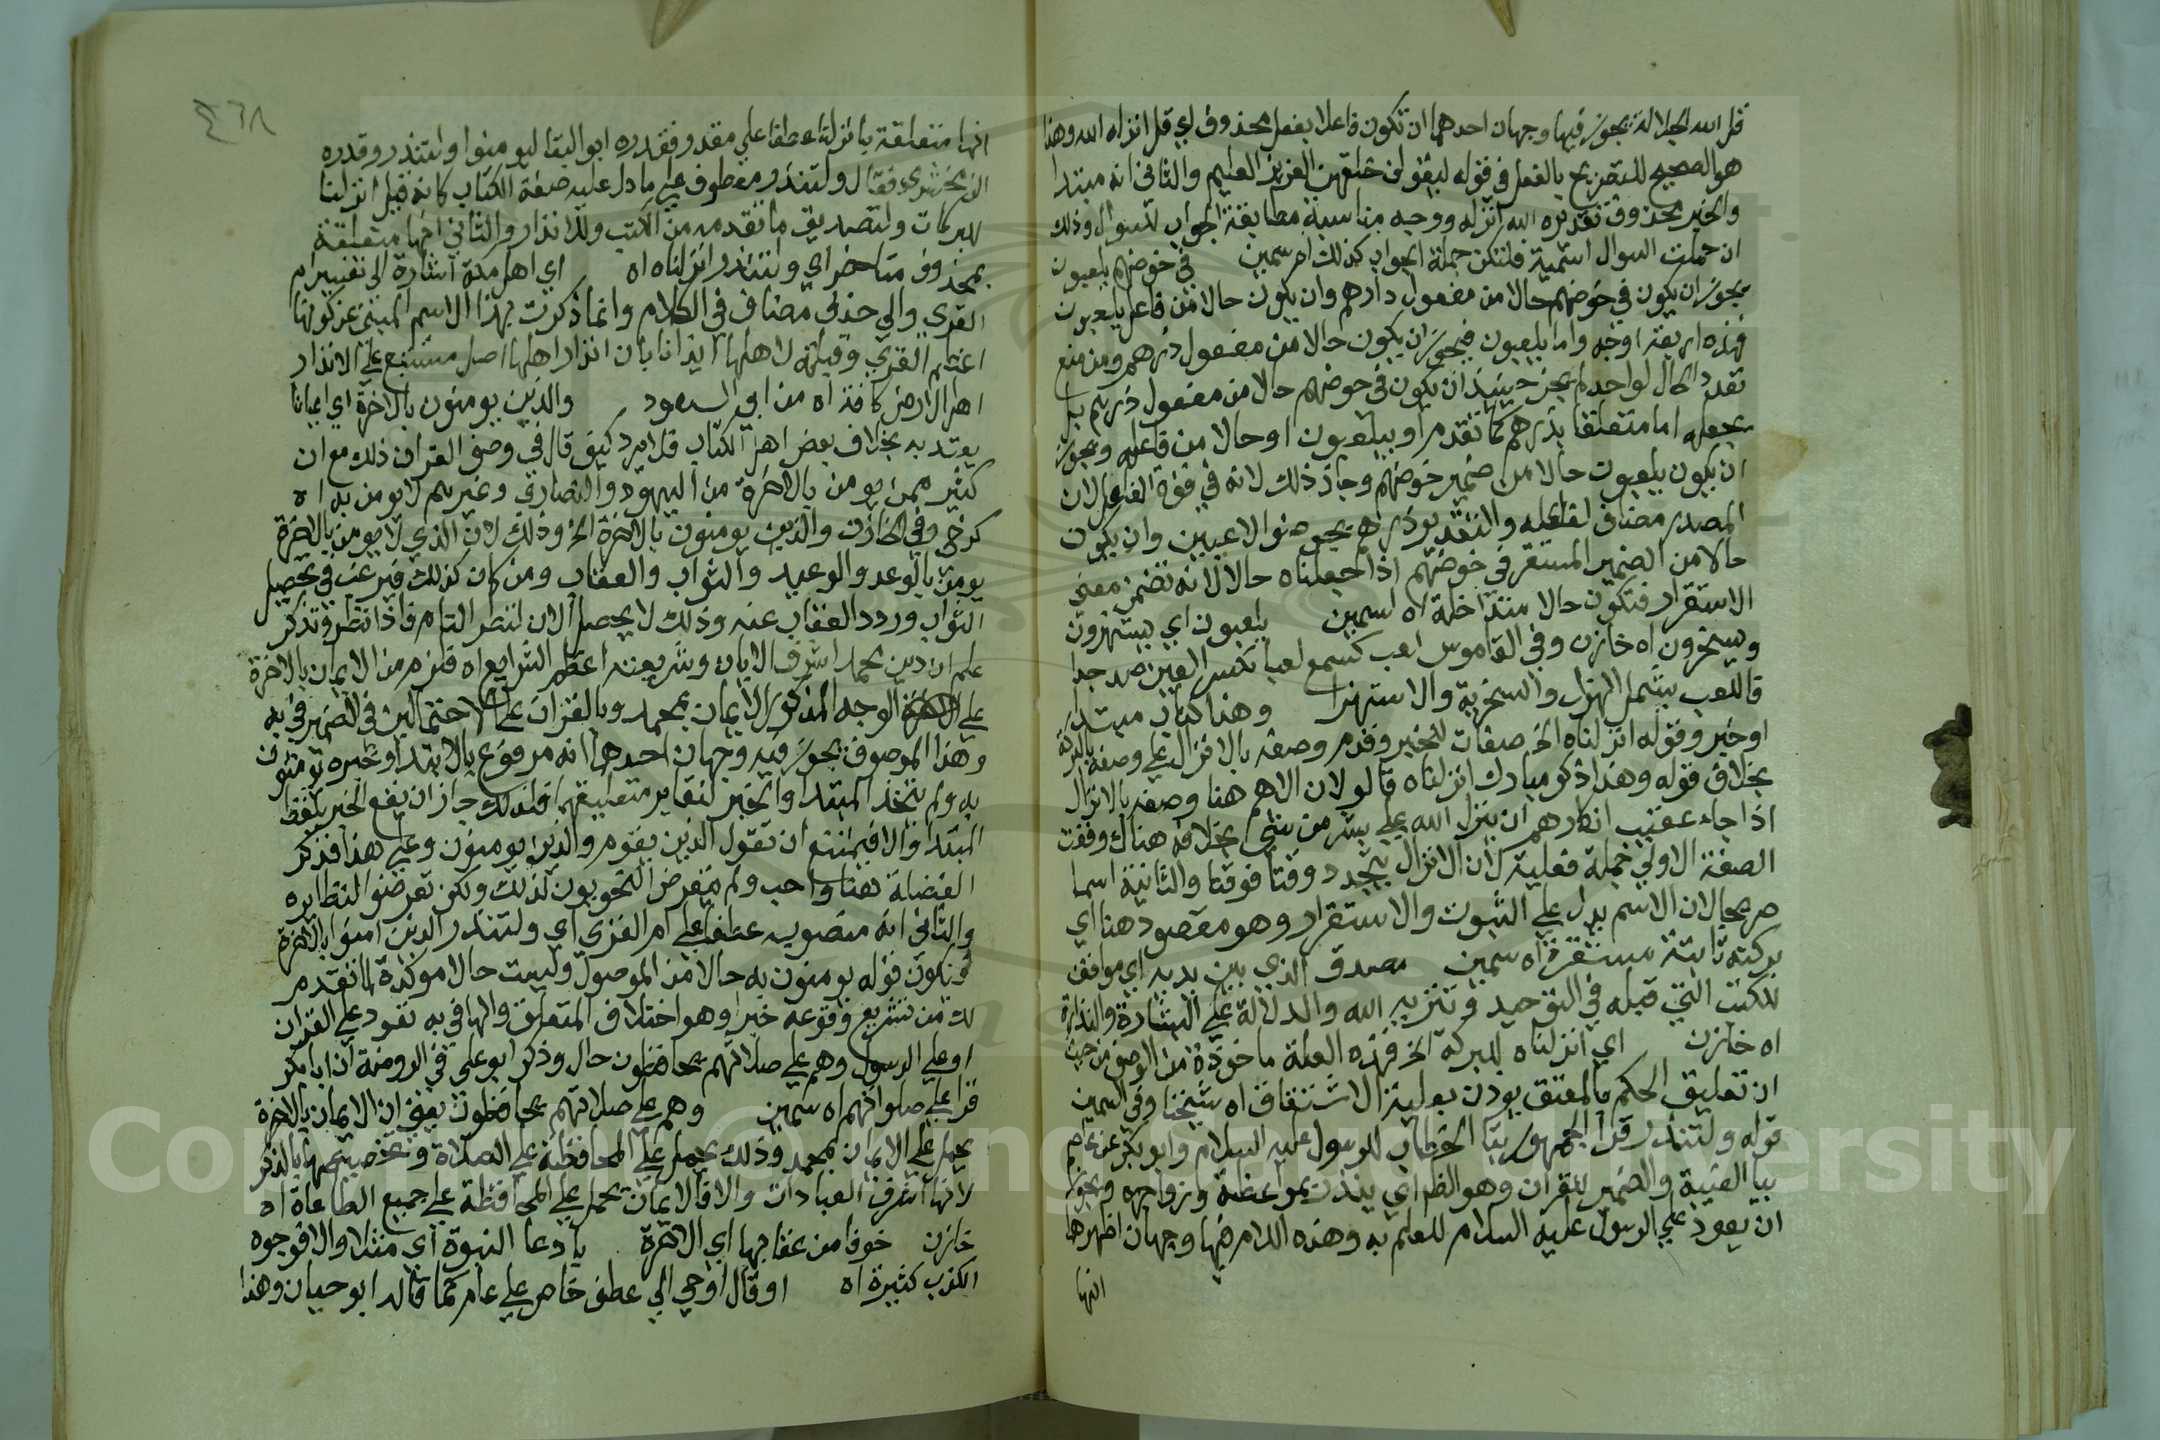 قل الله الجلالة يجوز فيها وجهان احدهما ان تكون فاعلا بفعل محذوف اي قل انزله الله وهذا
هو الصحيح للتصريح بالفعل في قوله ليقولن خلقهن العزيز العليم والثاني انه مبتدا
والخبر محذوف تقديره الله انزله ووجه مناسبة مطابقة الجواب للسوال وذلك
ان جملة السوال اسمية فلتكن جملة الجواب كذلك اه سمين في خوضهم يلعبون
يجوز ان يكون في خوضهم حالا من مفعول ذارهم وان يكون حالا من فاعل يلعبون
فهذه اربعة اوجه واما يلعبون فيجوز ان يكون حالا من مفعول ذرهم ومن منع
تعدد الحال لواحد لم يجز حينئذ ان يكون في خوضهم حالا من مفعول ذرهم بل
يجعله اما متعلقا بذرهم كما تقدم او بيلعبون او حالا من فاعله ويجوز
ان يكون يلعبون حالا من ضمير خوضهم وجاز ذلك لانه في قوة الفاعل لان
المصدر مضاف لفاعله والتقدير ذرهم يخوضوا لاعبين وان يكون
حالا من الضمير المستقر في خوضهم اذا جعلناه حالا لانه تضمن معنى
الاستقرار فتكون حالا متداخلة اه سمين يلعبون اي يستهزون
ويسخرون اه خازن وفي القاموس لعب كسمع لعبا بكسر العين ضد جدا
فاللعب يشمل الهزل والسخرية والاستهزا وهذا كتاب مبتدا
او خبر وقوله انزلناه الخ صفات للخبر وقدم وصفه بالانزال على وصفه بالبركة
بخلاف قوله وهذا ذكر مبارك انزلناه قالو لان الاهم هنا وصفه بالانزال
اذا جاء عقيب انكارهم ان ينزل الله على بشر من شي بخلافه هناك ووقعت
الصفة الاولى جملة فعلية لان الانزال يتجدد وقتا فوقتا والثانية اسما
صريحا لان الاسم يدل على الثبوت والاستقرار وهو مقصود هنا اي
بركته ثابتة مستقرة اه سمين مصدق الذي بين يديه اي موافق
للكتب التي قبله في التوحيد وتنزيه الله والدلالة على البشارة والنذارة
اه خازن اي انزلناه للبركة الخ فهذه العلة ماخوذة من الوصف من حيث
ان تعليق الحكم بالمعتق يوذن بعلية الاشتقاق اه شيخنا وفي السمين
قوله ولتنذر قرا الجمهور بتا الخطاب للرسول عليه السلام وابو بكر عن عاصم
بيا الغيبة والضمير للقران وهو الظم اي ينذر بمواعظه وزواجره ويجوز
ان يعود على الرسول عليه السلام للعلم به وهذه اللام فيها وجهان اظهرها
انها
٤٦٨
انها متعلقة بانزلنا عطفا على مقدر فقدره ابو البقا ليومنوا ولتنذر وقدره
الزمخشري فقال ولتنذر معطوف على ما دل عليه صفة الكتاب كانه قيل انزلنا
للبركات ولتصديق ما تقدمه من الكتب وللانذار والثاني انها متعلقة
بمحذوف متاخر اي ولتنذر انزلناه اه اي اهل مكة اشارة الى تفسير ام
القرى والى حذف مضاف في الكلام وانما ذكرت بهذا الاسم المبنى عن كونها
اعظم القرى وقبلة لاهلها ايذانا بان انذار اهلها اصل مستتبع على الانذار
اهل الارض كافة اه من ابي السعود والذين يومنون بالاخرة اي ايمانا
يعتد به بخلاف بعض اهل الكتاب فلا يرد كيف قال في وصف القران ذلك مع ان
كثير ممن يومن بالاخرة من اليهود والنصارى وغيرهم لا يومن به اه
كرخى وفي الخازن والذين يومنون بالاخرة الخ وذلك لان الذي لا يومن بالاخرة
يومن بالوعد والوعيد والثواب والعقاب ومن كان كذلك فيرغب في تحصيل
الثواب ورود العقاب عنه وذلك لا يحصل الان لنظر التام فاذا نظر وتذكر
علم ان دين محمد اشرف الاديان وشريعته اعظم الشرايع اه فلزم من الايمان بالاخرة
على الوجه المذكور الايمان بمحمد وبالقران على الاحتمالين في الضمير في به
وهذا الموصوف يجوز فيه وجهان احدهما انه مرفوع بالابتدا وخبره يومنون
به ولم يتخد المبتدا والخبر لتغاير متعليقهما فلذلك جاز ان يقع الخبر بلفظ
المبتدا والا فيمتنع ان تقول الذين يقوم والذين يومنون وعلى هذا فذكر
الفضلة هنا واجب ولم يتعرض النحويون لذلك ولكن تعرضوا لنظايره
والثاني انه منصوب عطفا على ام القرى اي ولتنذر الذين امنوا بالاخرة
فتكون قوله يومنون به حالا من الموصول وليست حالا موكدة لما تقدم
لك من تشريع وقوعه خبرا وهو اختلاف المتعلق والها في به تعود على القران
او على الرسول وهم على صلاتهم يحافظون حال وذكر ابو على في الروضة ان ابا بكر
قرا على صلواتهم اه سمين وهم على صلاتهم يحافظون يعني ان الايمان بالاخرة
يحمل على الايمان بمحمد وذلك يحمل على المحافظة على الصلاة وتخصيصها بالذكر
لانها اشرف العبادات والا فالايمان يحمل على المحافظة على جميع الطاعاة اه
خازن خوفا من عقابها اي الاخرة يا دعا النبوة اي مثلا والا فوجوه
الكذب كثيرة اه او قال اوحي الي عطف خاص على عام كما قاله ابو حيان وهذا